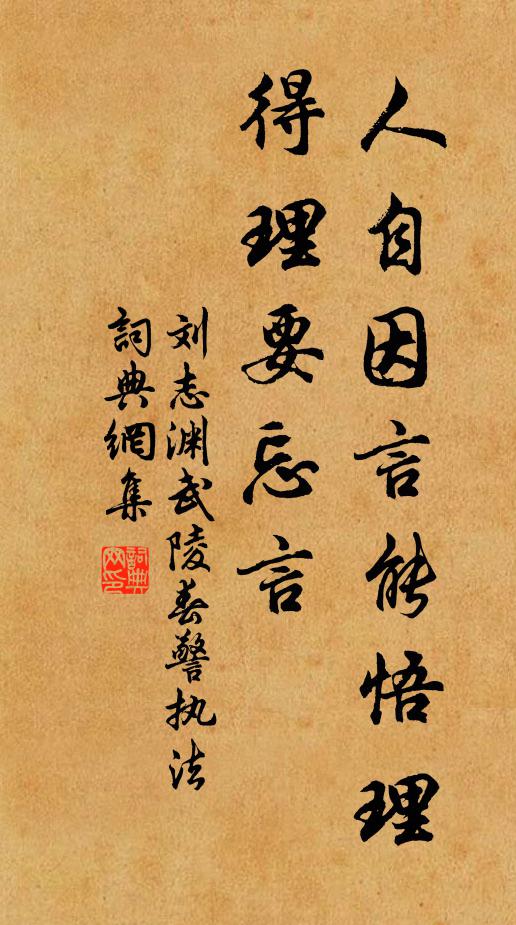 人自因言能悟理
得理要忘言
刘志渊武陵春警执法
詞典網集
詞典网印